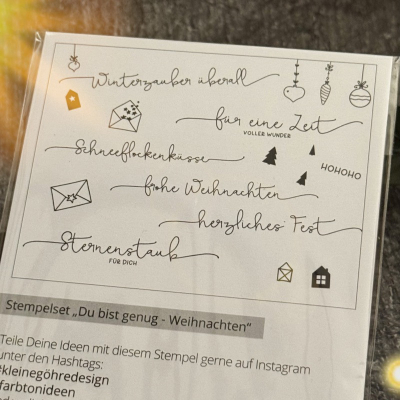 Winterzauber überall
für eine Zeit
VOLLER WUNDER
Schneeflockenküsse
HOHOHO
frohe Weihnachten
herzliches Fest
Sternenstaub
FÜR DICH
Stempelset „Du bist genug - Weihnachten“
Teile Deine Ideen mit diesem Stempel gerne auf Instagram
unter den Hashtags:
#kleinegöhredesign
#farbtonideen